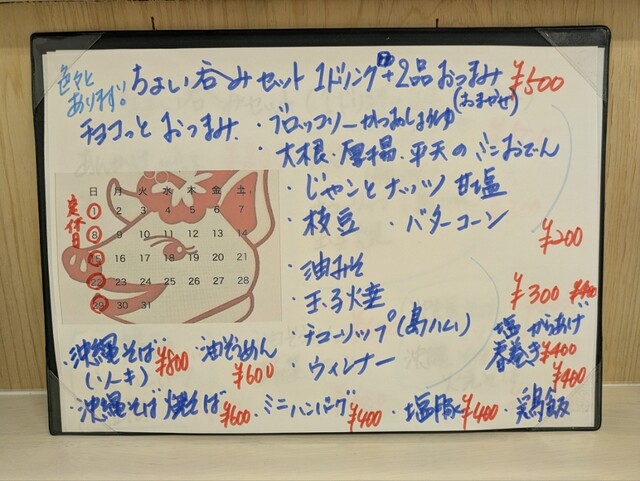 色々と
あります!
ちょい呑みセット 1ドリンク+2品おつまみ ¥500
(おまかせ)
チョコっとおつまみ
・ブロッコリーかつおしょうゆ
・大根・厚揚・平天のミニおでん
・じゃことナッツ甘塩
・枝豆 ・バターコーン
¥200
・油みそ
・玉子焼
¥300
・チューリップ(島ハム)
・ウィンナー
定休日
日 月 火 水 木 金 土
1 2 3 4 5 6 7
8 9 10 11 12 13 14
15 16 17 18 19 20 21
22 23 24 25 26 27 28
29 30 31
・沖縄そば ¥800
(ソーキ)
油ぞうめん
¥600
塩からあげ
¥400
春巻き
¥400
・沖縄そば焼そば ¥600
・ミニハンバーグ ¥400
・塩豚 ¥400
・鶏飯